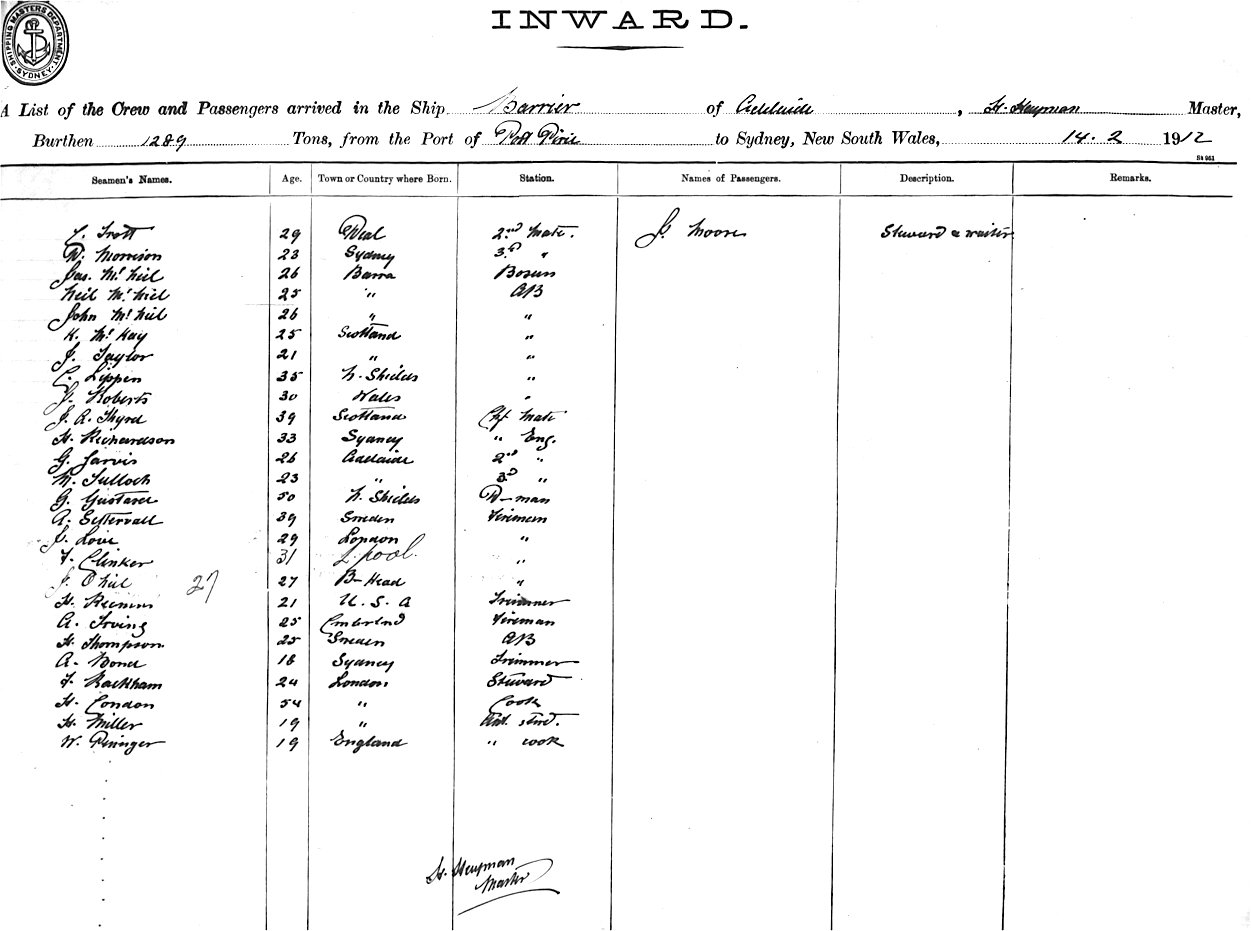 SHIPPING MASTERS DEPARTMENT SYDNEY
INWARD.
A List of the Crew and Passengers arrived in the Ship Barrier of Adelaide, H. Heyman Master,
Burthen 1289 Tons, from the Port of Port Pirie to Sydney, New South Wales, 14.2 1912
Seamen's Names. Age. Town or Country where Born. Station. Names of Passengers. Description. Remarks.
Trott 29 Deal 2nd Mate. J. Moore Steward & waiter
D. Morrison 23 Sydney 3rd "
Jas. McNeil 26 Barra Bosun
Neil McNeil 25 " AB
John McNeil 26 " "
K. McKay 25 Scotland "
J. Taylor 21 " "
C. Lippen 35 N. Shields "
J. Roberts 30 Wales "
J. A. 39 Scotland Chf Mate
H. Richardson 33 Sydney " Eng.
G. Jarvis 26 Adelaide 2nd "
Tulloch 23 " 3rd "
G. 50 N. Shields D-man
A. Settervall 39 Sweden Firemen
J. Love 29 London "
F. Clinker 31 L.pool. "
J. O'Neil 27 27 B-Head "
H. 21 U.S.A Trimmer
A. Irving 25 Fireman
H. Thompson 25 Sweden AB
A. Bond 18 Sydney Trimmer
F. Rackham 24 London Steward
H. London 54 " Cook
H. Miller 19 " stwd.
W. 19 England " cook
H. Heyman
Master